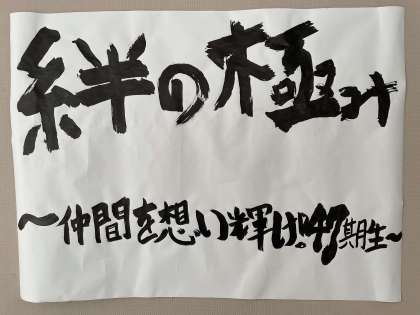 絆の極み
〜仲間を想い輝け!47期生〜